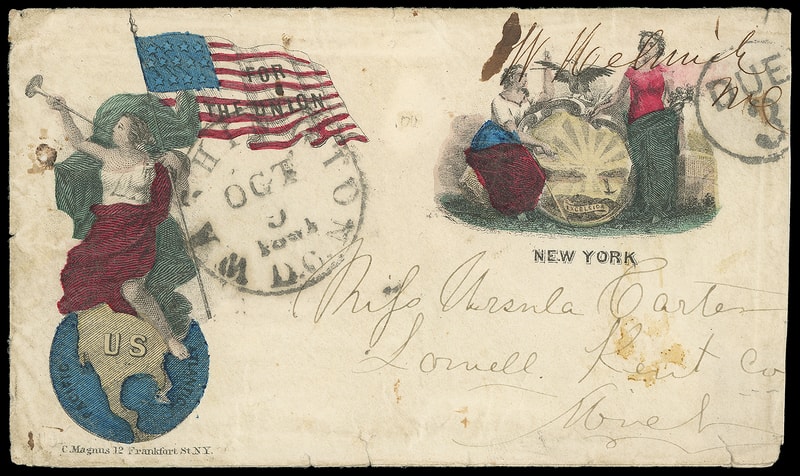 FOR
THE UNION
WASHINGTON
OCT
D.C.
US
PACIFIC
ATLANTIC
C. Magnus 12 Frankfort St. N.Y.
EXCELSIOR
NEW YORK
DUE
3
Miss Ursula Carter
Lowell. Kent Co
Mich